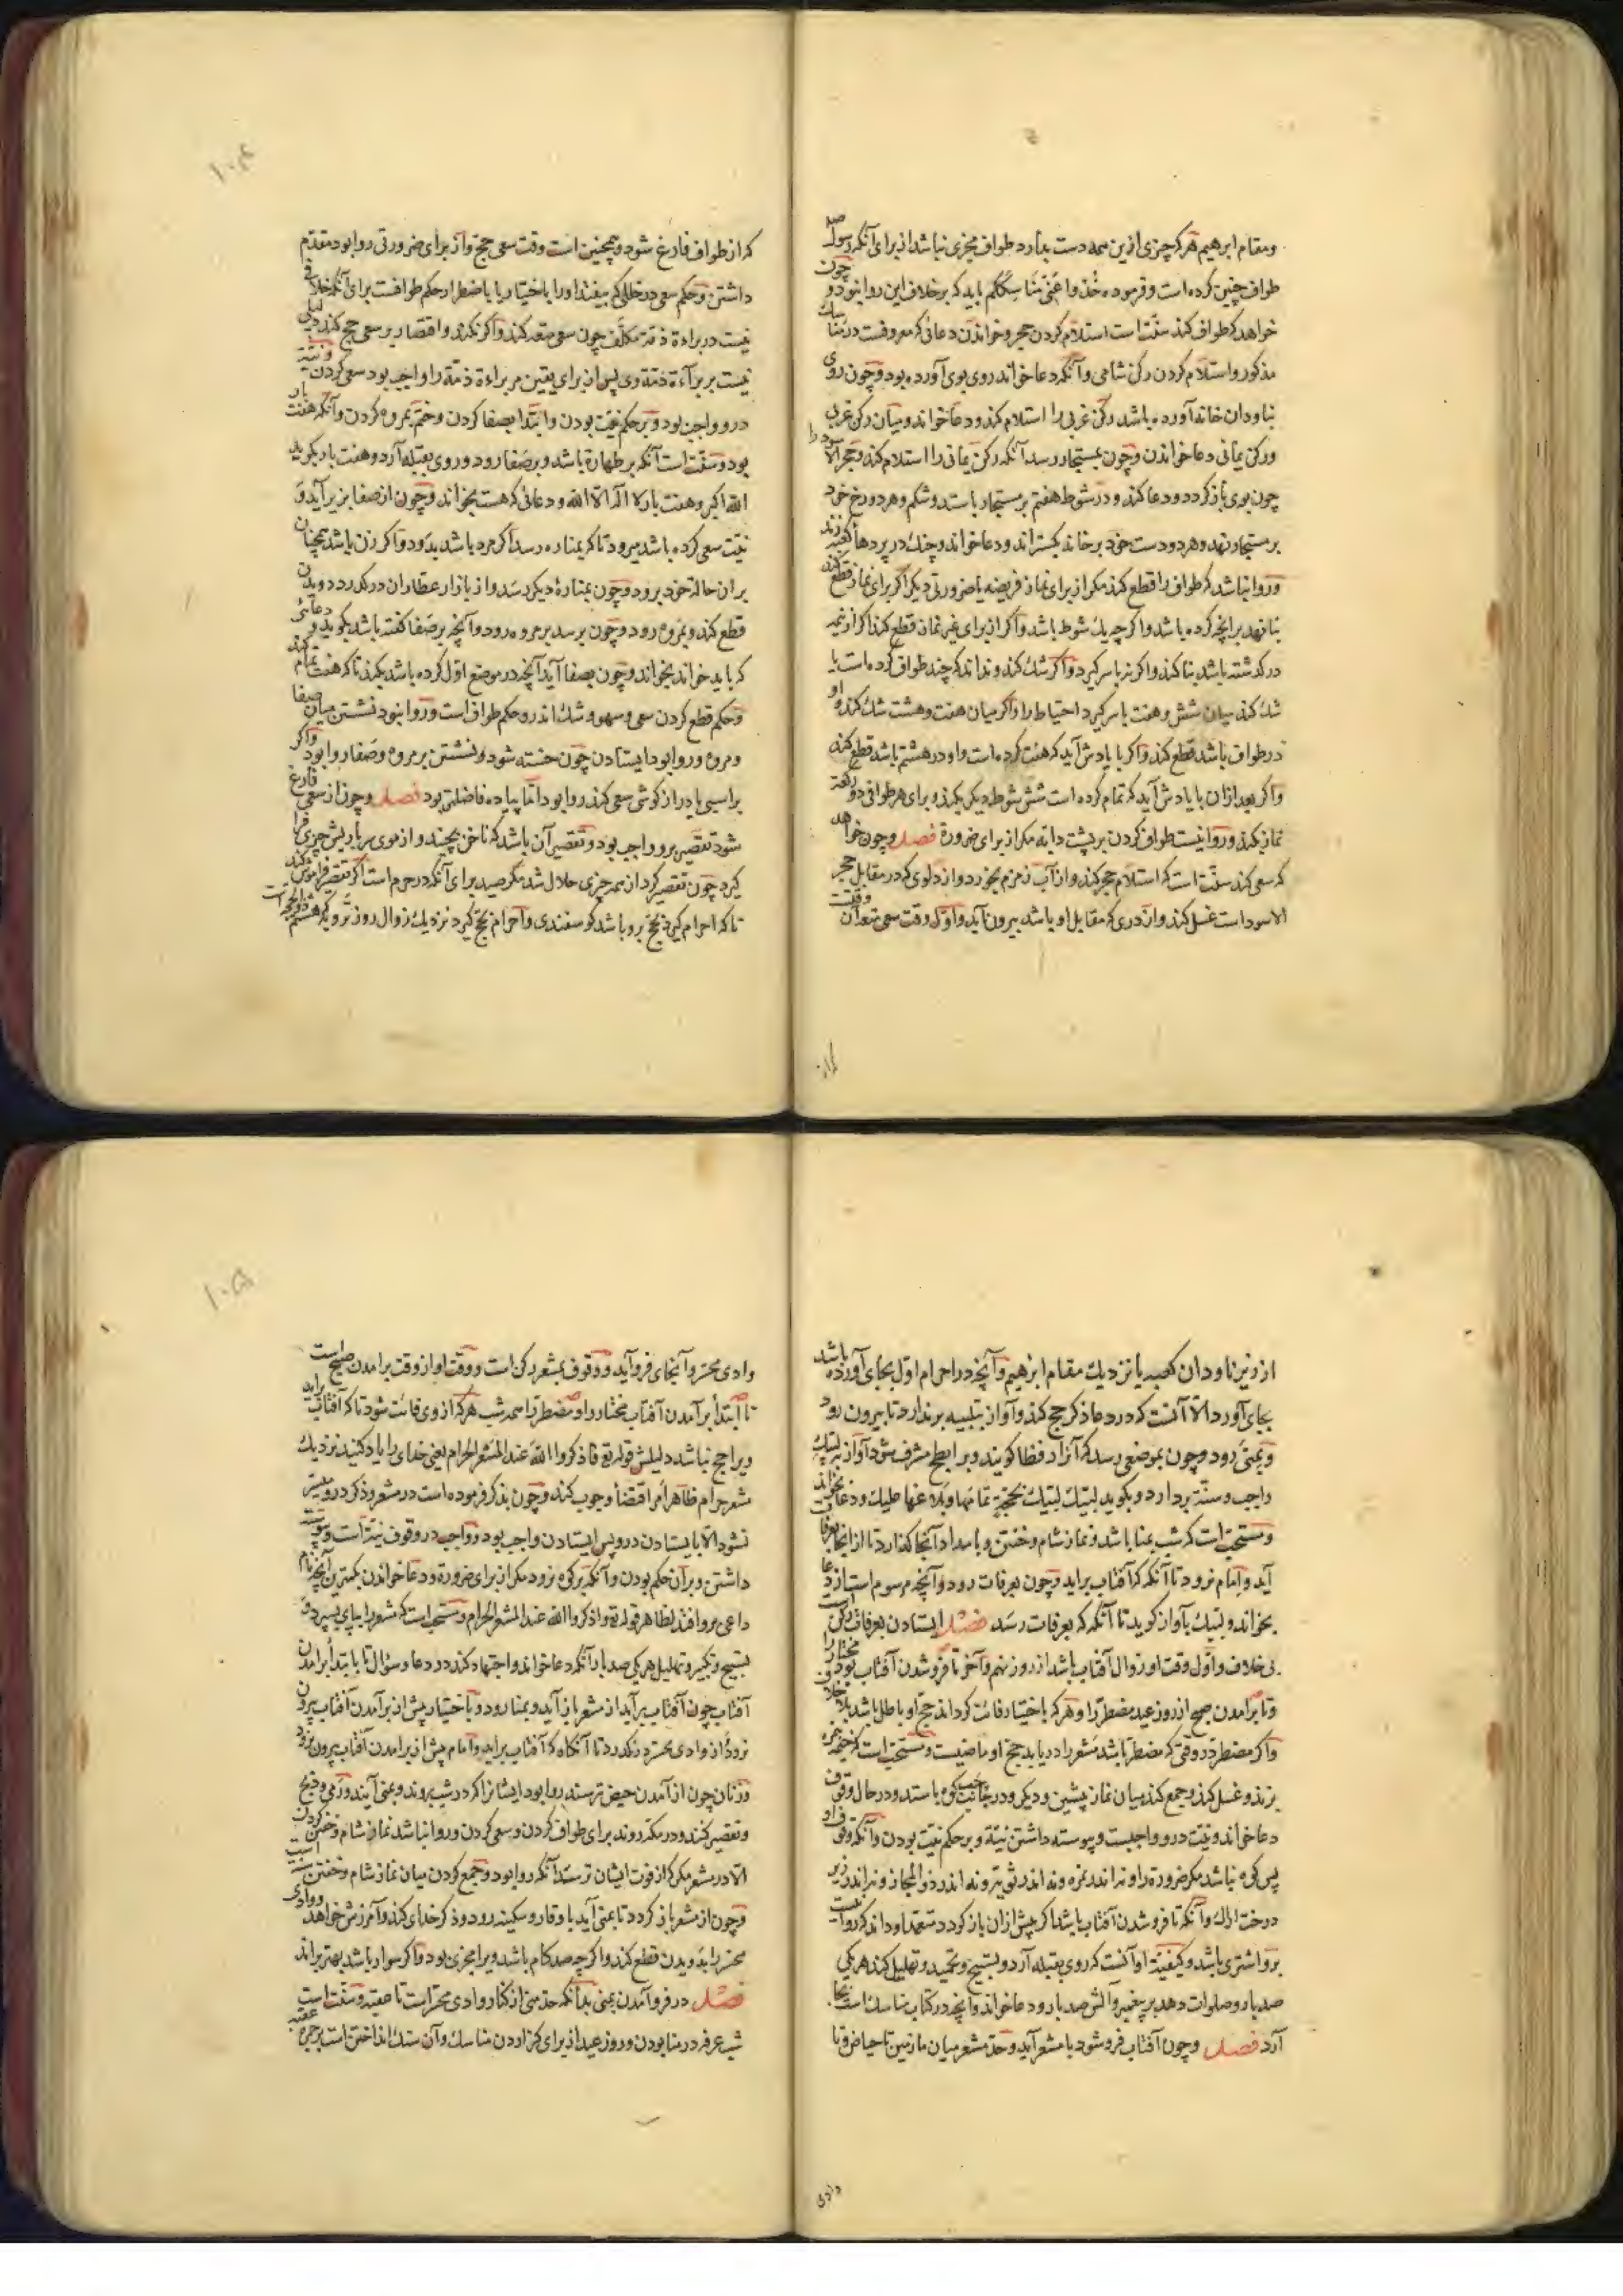 ومقام ابرهیم هر که چیزی ازین همه دست بدارد طواف مجزی نباشد از برای آنکه رسول صلعم
طواف چنین کرده است وفرموده خذوا عنی مناسککم باید که برخلاف این روا نبود و چون
خواهد که طواف کند سنت است استلام کردن حجر وخواندن دعائی که معروفست در مناسک
مذکور واستلام کردن رکن شامی وآنکه دعا خواند روی بوی آورده بود وچون روی
بناودان خانه آورده باشد رکن غربی را استلام کند ودعا خواند ومیان رکن غربی
ورکن یمانی دعا خواندن وچون بمستجار رسد آنکه رکن یمانی را استلام کند وحجر الاسود را
چون بوی باز کردد ودعا کند ودر شوط هفتم بر مستجار باستد وشکم وهر دو رخ خود
بر مستجار نهد وهر دو دست خود بر خانه بکستراند ودعا خواند وچنک در پردهاء کعبه زند
وروا نباشد که طواف را قطع کند مکر از برای نماز فریضه یا ضرورتی دیکر اکر برای نماز قطع کند
بنا نهد بر آنچه کرده باشد واکر چه یک شوط باشد واکر از برای غیر نماز قطع کند اکر از نیمه
در کذشته باشد بنا کند واکر نه با سر کیرد واکر شک کند ونداند که چند طواف کرده است یا
شک کند میان شش وهفت با سر کیرد احتیاط را واکر میان هفت وهشت شک کند واو
در طواف باشد قطع کند واکر با یادش آید که هفت کرده است واو در هشتم باشد قطع کند
واکر بعد ازان با یادش آید که تمام کرده است شش شوط دیکر بکند وبرای هر طوافی دو رکعت
نماز بکند وروا نیست طواف کردن بر پشت دابه مکر از برای ضرورة فصل وچون خواهد
که سعی کند سنت است که استلام حجر کند واز آب زمزم بخورد واز دلوی که در مقابل حجر
الاسود است غسل کند واز دری که مقابل او باشد بیرون آید واول وقت سعی متعه آن وقتست
که از طواف فارغ شود وهمچنین است وقت سعی حج واز برای ضرورتی روا بود مقدم
داشتن وحکم سعی در خللی که بیفتد اورا باختیار یا باضطرار حکم طوافست برای آنکه خلافی
نیست در براءة ذمة مکلف چون سعی متعه کند واکر نکرد واقتصار بر سعی حج کند دلیلی
نیست بر براءة ذمه وی پس از برای یقین مر براءة ذمة را واجب بود سعی کردن ونیة
درو واجب بود وبر حکم نیت بودن وابتدا بصفا کردن وختم بمروه کردن وآنکه هفت بار
بود وسنت است آنکه بر طهارة باشد وبر صفا رود وروی بقبله آرد وهفت بار بکوید
الله اکبر وهفت بار لا اله الا الله ودعائی که هست بخواند وچون از صفا بزیر آید و
نیت سعی کرده باشد میرود تا که بمناره رسد اکر مرد باشد بدود واکر زن باشد همچنان
بران حالة خود برود وچون بمنارهٔ دیکر رسد واز بازار عطاران در کذرد دویدن
قطع کند وبمروه رود وچون برسد بر مروه رود وآنچه بر صفا کفته باشد بکوید ودعائی
که باید خواند بخواند وچون بصفا آید آنچه در موضع اول کرده باشد بکند تا که هفت تمام کند
وحکم قطع کردن سعی وسهو وشک اندر وحکم طواف است وروا نبود نشستن میان صفا
ومروه وروا بود ایستادن چون خسته شود ونشستن بر مروه وصفا روا بود واکر
بر اسبی یا دراز کوشی سعی کند روا بود اما پیاده فاضلتر بود فصل وچون از سعی فارغ
شود تقصیر برو واجب بود وتقصیر آن باشد که ناخن بچیند واز موی سر یا ریش چیزی فرا
کیرد چون تقصیر کرد از همه چیزی حلال شد مکر صید برای آنکه در حرم است اکر تقصیر فراموش کند
تا که احرام کیرد بحج برو باشد کوسفندی واحرام بحج کیرد نزدیک زوال روز ترویه که هشتم ذوالحجه است
از زیر ناودان کعبه یا نزدیک مقام ابرهیم وآنچه در احرام اول بجای آورده باشد
بجای آورد الا آنست که در دعا ذکر حج کند وآواز بتلبیه بر ندارد تا بیرون رود
وبمنی رود وچون بموضعی رسد که آنرا رفطا کویند وبر ابطح مشرف شود آواز به لبیک
واجب وسنة بردارد وبکوید لبیک لبیک بحجة تمامها وبلاغها علیک ودعا بخواند
ومستحب است که شب بمنا باشد ونماز شام وخفتن وبامداد آنجا کذارد تا از آنجا بعرفات
آید وامام نرود تا آنکه که آفتاب براید وچون بعرفات رود وآنچه مرسوم است از دعا
بخواند ولبیک بآواز کوید تا آنکه که بعرفات رسد فصل ایستادن بعرفات رکن است
بی خلاف واول وقت او زوال آفتاب باشد از روز نهم وآخر تا فرو شدن آفتاب بود مختار را و
وتا برآمدن صبح از روز عید مضطر را وهر که باختیار فائت کرداند حج او باطل باشد بلا خلاف
واکر مضطر در وقتی که مضطر باشد مشعر را دریابد حج او ماضیست ومستحب است که خیمه بنمره
بزند وغسل کند وجمع کند میان نماز پیشین ودیکر ودر جانب چپ کوه باستد ودر حال وقوف
دعا خواند ونیت درو واجبست وپیوسته داشتن نیة وبر حکم نیت بودن وآنکه وقوف او
پس کوه نباشد مکر ضرورة را ونه اندر نمره ونه اندر ثویه ونه اندر ذو المجاز ونه اندر زیر
درخت اراک وآنکه تا فرو شدن آفتاب باشد اکر پیش ازان باز کردد متعمدا وداند که روا نیست
برو اشتری باشد وکیفیة او آنست که روی بقبله آرد وبتسبیح وتحمید وتهلیل کند هر یکی
صد بار وصلوات دهد بر پیغمبر وآلش صد بار ودعا خواند وآنچه در کتاب مناسک است بجا
آرد فصل وچون آفتاب فرو شود با مشعر آید وحد مشعر میان مازمین تا حیاض وتا
وادی محسر وآنجای فرو آید ووقوف بمشعر رکن است ووقت او از وقت برآمدن صبح است
تا ابتدأ برآمدن آفتاب مختار را ومضطر را همه شب هر که از وی فائت شود تا که آفتاب براید
ویرا حج نباشد دلیلش قوله تع فاذکروا الله عند المشعر الحرام یعنی خدای را یاد کنید نزدیک
مشعر حرام ظاهر أمر اقتضأ وجوب کند وچون بذکر فرموده است در مشعر وذکر درو میسر
نشود الا بایستادن درو پس ایستادن واجب بود وواجب در وقوف نیة است وپیوسته
داشتن وبر آن حکم بودن وآنکه بر کوه نرود مکر از برای ضرورة ودعا خواندن بکمترین آنچه نام
داعی برو افتد لظاهر قوله تع واذکروا الله عند المشعر الحرام ومستحب است که مشعر را بپای بسپرد و
بتسبیح وتکبیر وتهلیل هر یکی صد بار آنکه دعا خواند واجتهاد کند در دعا وسؤال تا بابتدأ برآمدن
آفتاب چون آفتاب برآید از مشعر باز آید وبمنا رود وباختیار پیش از برآمدن آفتاب بیرون
نرود واز وادی محسر در نکذرد تا آنکاه که آفتاب براید وامام پیش از برآمدن آفتاب بیرون نرود
وزنان چون از آمدن حیض ترسند روا بود ایشانرا که در شب بروند وبمنی آیند ورمی وذبح
وتقصیر کنند ودر مکه روند برای طواف کردن وسعی کردن وروا نباشد نماز شام وخفتن کردن
الا در مشعر مکر که از فوت ایشان ترسد آنکه روا بود وجمع کردن میان نماز شام وخفتن سنت است
وچون از مشعر باز کردد تا بمنی آید با وقار وسکینه رود وذکر خدای کند وآمرزش خواهد ووادی
محسر را بدویدن قطع کند واکر چه صد کام باشد ویرا مجزی بود واکر سوار باشد بهتر براند
فصل در فرو آمدن بمنی بدانکه حد منی از کنار وادی محسر است تا عقبه وسنت است
شب عرفه در منا بودن وروز عید از برای کزاردن مناسک وآن سنک انداختن است بر جمره عقبه
وادی
۱۰۴
۱۰۵